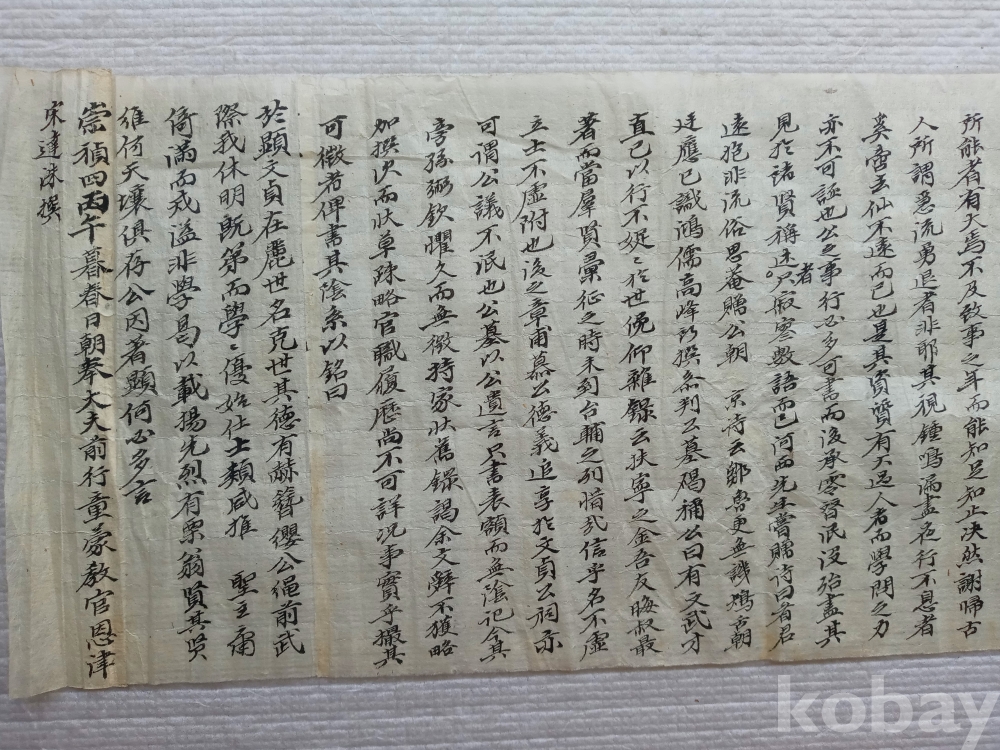 所能者有大焉不及致事之年而能知足知止决然謝歸古
人所謂急流勇退者非耶其視鍾鳴漏盡夜行不息者
奚啻去仙不遠而已也是其資質有大過人者而學問之力
亦不可誣也公之事行必多可書而後承零替泯沒殆盡其
見於諸賢稱述者只寂寥數語而已河西先生嘗贈詩曰省君
遠抱非流俗思菴贈公朝 京詩云鄒魯更無譏鴂舌朝
廷應已識鴻儒高峰所撰參判公墓碣稱公曰有文武才
直己以行不娖〻於世俛仰雜錄云扶寧之金吾友晦叔最
著而當羣賢彙征之時未到台輔之列惜哉信乎名不虛
立士不虛附也後之章甫慕公德義追享於文貞公祠亦
可謂公議不泯也公墓以公遺言只書表額而無陰記今其
旁孫弼欽懼久而無徵持家狀舊錄謁余文辭不獲略
加撰次而狀草疎略官職履歷尚不可詳况事實乎撮其
可徵者俾書其陰系以銘曰
於顯文貞在麗世名克世其德有赫簪纓公繩前武
際我休明旣第而學〻優始仕士類咸推 聖主
倚滿而戒溢非學曷以載揚先烈有栗翁賢其
維何天壤俱存公因著顯何必多言
崇禎四丙午暮春日朝奉大夫前行童蒙教官恩津
宋達洙撰
kobay